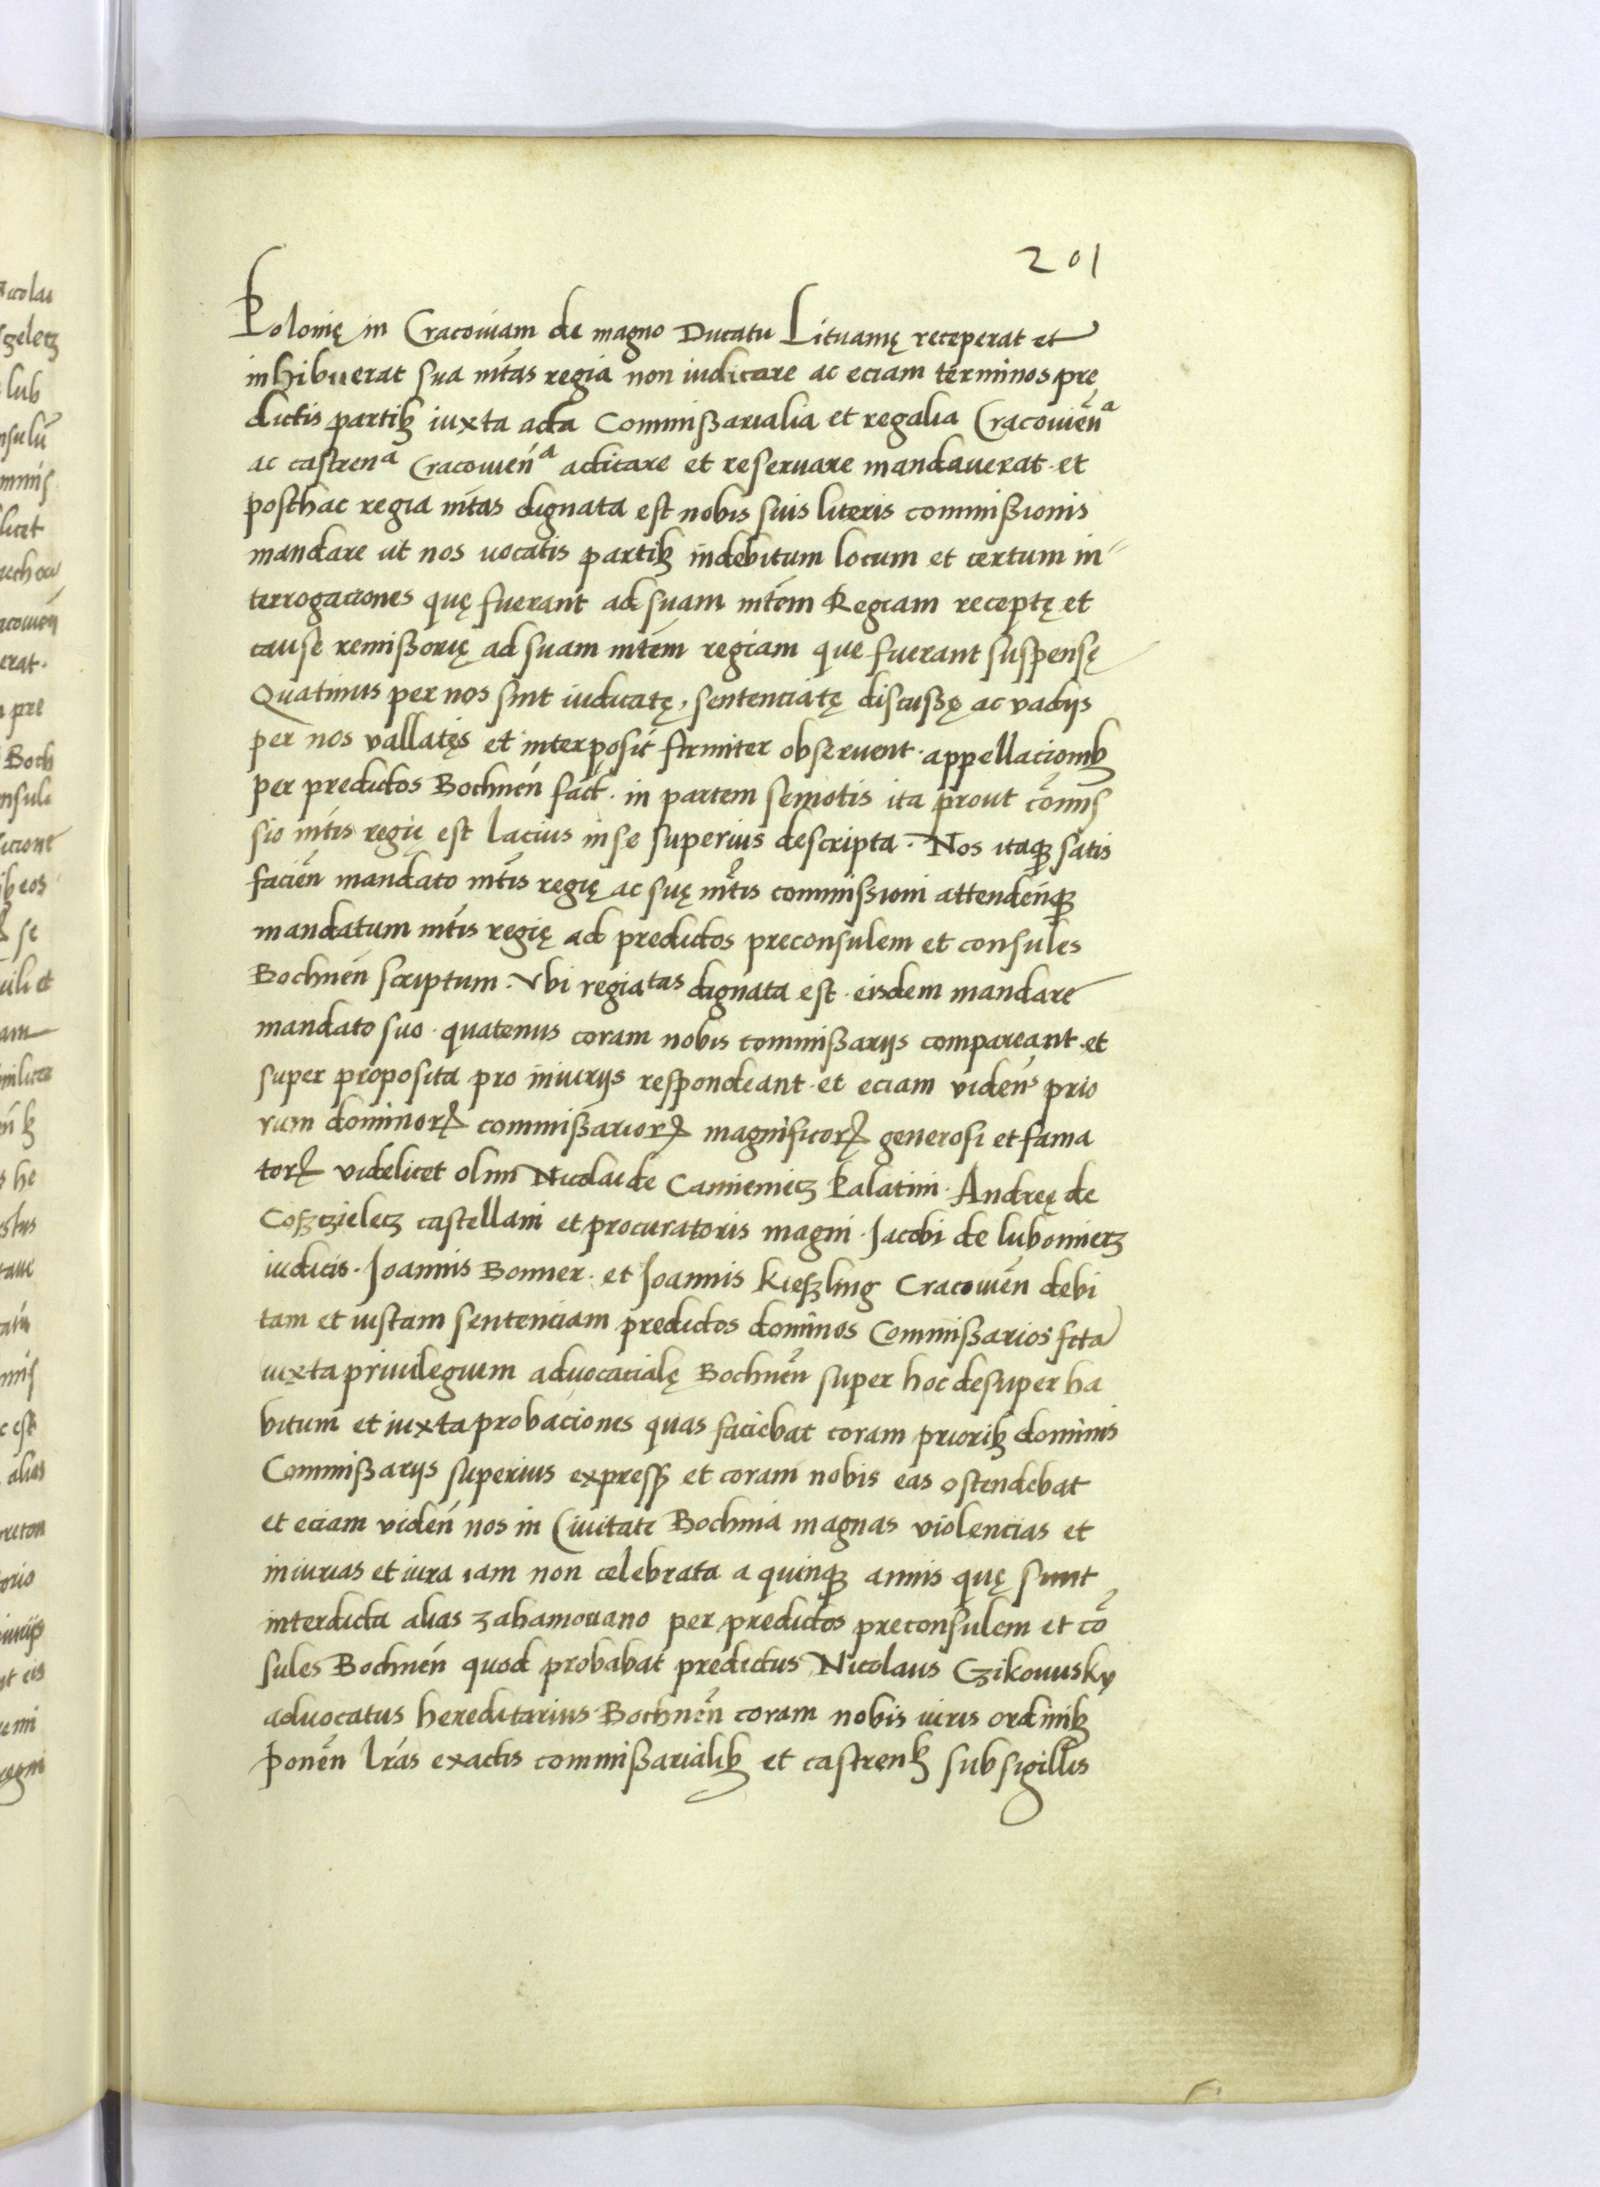 201
Polonię in Cracoviam de magno Ducatu Lituanię receperat et
inhibuerat sua mtas regia non iudicare ac eciam terminos prę
dictis partibꝫ iuxta acta Commissarialia et regalia Cracovien̄ᵃ
ac castrenᵃ Cracovien̄ᵃ actitare et reservare mandaverat. et
posthac regia mtas dignata est nobis suis literis commissionis
mandare ut nos vocatis partibꝫ indebitum locum et certum in⸗
terrogaciones quę fuerant ad suam mtem Regiam receptę et
cause remissorię ad suam mtem regiam que fuerant suspensę
Quatinus per nos sint iudicatę, sentenciatę discussę ac vadijs
per nos vallatęs et interposit̄ firmiter observent. appellacionibꝫ
per predictos Bochnen̄ fact̄. in partem semotis ita prout co͞mis
sio mtis regię est lacius in se superius descripta. Nos itaqꝫ satis
facien̄ mandato mtis regię ac suę mtis commissioni attendenqꝫ
mandatum mtis regię ad predictos preconsulem et consules
Bochnen̄ scriptum. Ubi regiatas dignata est. eisdem mandare
mandato suo. quatenus coram nobis commissarijs compareant. et
super proposita pro iniurijs respondeant. et eciam viden̄s prio
rum dominorꝝ commissariorꝝ magnificorꝝ generosi et fama
torꝝ videlicet olim Nicolai de Camienietz Palatini. Andreę de
Cosczieletz castellani et procuratoris magni. Jacobi de lubomierz
iudicis. Joannis Bonner. et Joannis kieszling Cracovien̄ debi
tam et iustam sentenciam predictos dominos Commissarios fcta
iuxta privilegium advocacialę Bochnen̄ super hoc desuper ha
bitum et iuxta probaciones quas faciebat coram prioribꝫ dominis
Commissarijs superius express̄ et coram nobis eas ostendebat
et eciam viden̄ nos in Civitate Bochnia magnas violencias et
iniurias et iura iam non celebrata a quinqꝫ annis quę sunt
interdicta alias zahamovano per predictos preconsulem et co͞
sules Bochnen̄ quod probabat predictus Nicolaus Czikowsky
advocatus hereditarius Bochnen̄ coram nobis iuris ordinibꝫ
ponen̄ lr̄as exactis commissarialibꝫ et castrenbꝫ sub sigillis